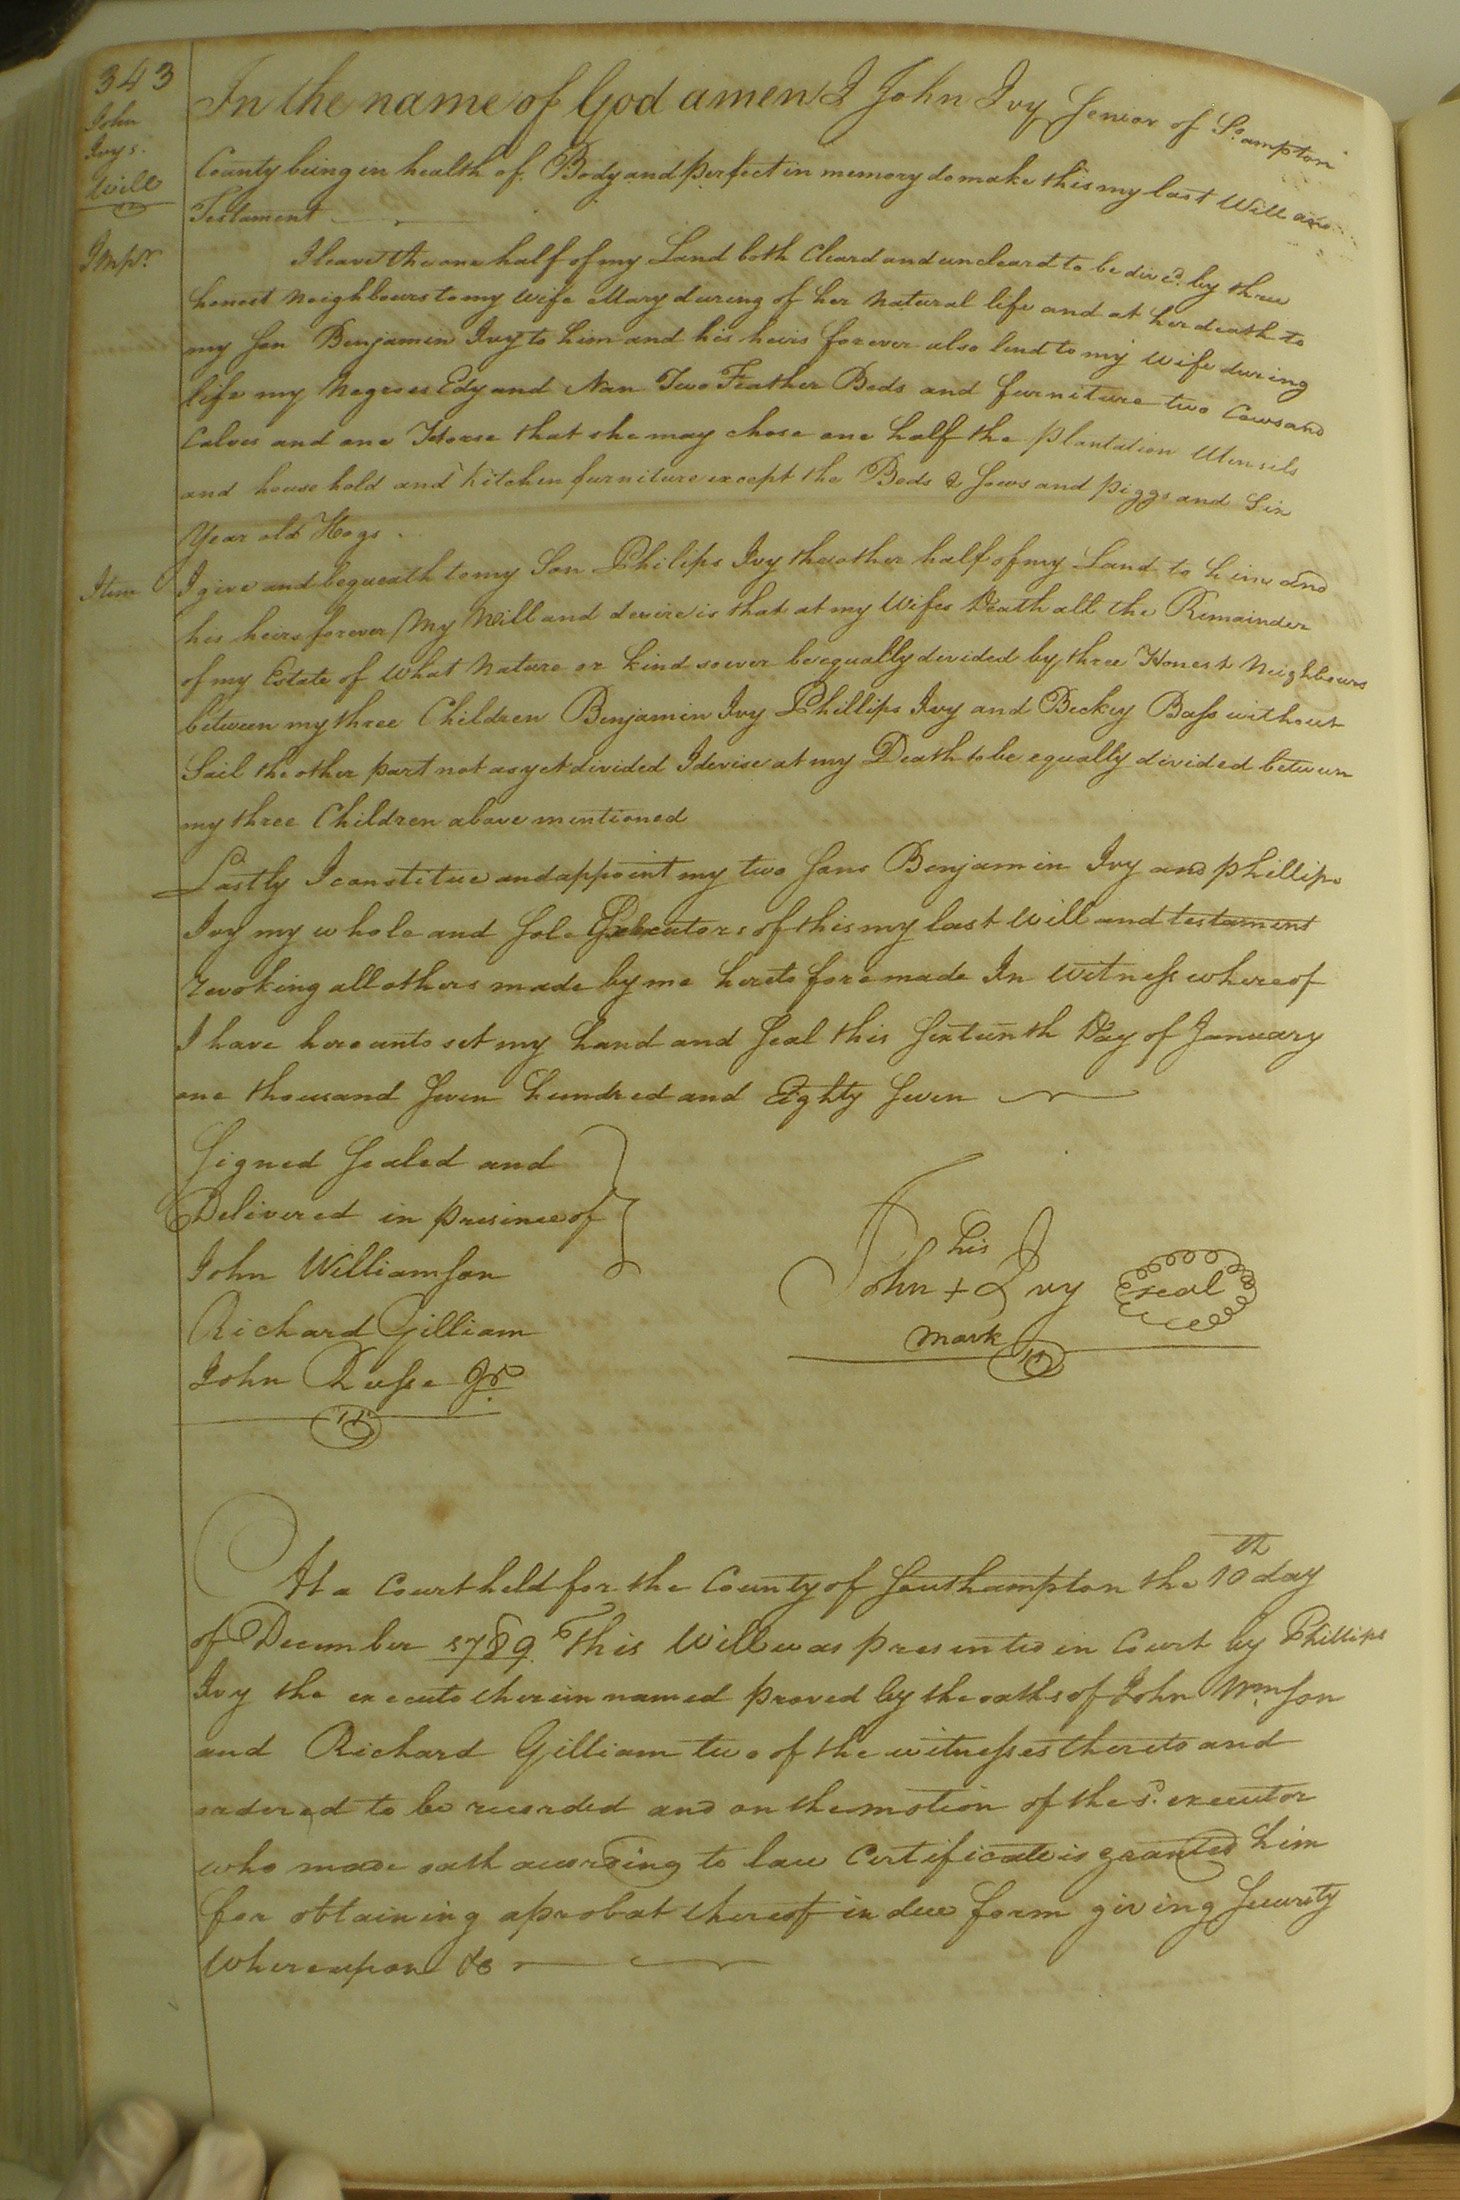 343
John
Ivys.
Will
In the name of God amen I John Ivy Senior of So.ampton
County being in health of Body and perfect in memory do make this my last Will and
Testament
Impr.
I leave the one half of my Land both Cleard and uncleard to be divid. by three
honest Neighbours to my wife Mary during of her Natural life and at her death to
my Son Benjamin Ivy to him and his heirs forever also lend to my wife during
life my Negroes Edy and Nan Two Feather Beds and furniture two Cows and
Calves and one Horse that she may chose one half the plantation Utensils
and house hold and kitchen furniture except the Beds 2 Sows and piggs and Six
Year old Hogs
Item I give and bequeath to my Son Philips Ivy the other half of my Land to him and
his heirs forever My Will and desire is that at my Wifes Death all the Remainder
of my Estate of What Nature or kind soever be equally divided by three Honest Neighbours
between my three Children Benjamin Ivy Phillips Ivy and Beckey Bass without
Sail the other part not as yet divided I devise at my Death to be equally divided between
my three Children above mentioned
Lastly I constitue and appoint my two Sons Benjamin Ivy and phillips
Ivy my whole and Sole Executors of this my last Will and testament
revoking all others made by me hereto fore made In Witness whereof
I have here unto set my hand and Seal this Sixteenth Day of January
one thousand Seven hundred and Eighty Seven
Signed Sealed and
Delivered in presince of
John Williamson
Richard Gilliam
John Jr.
his
John + Ivy Seal
mark
At a Court held for the County of Southampton the 10th day
of December 1789. This Will was presented in Court by Phillips
Ivy the executo therein named proved by the oaths of John Wmson
and Richard Gilliam two of the witnesses thereto and
ordered to be recorded and on the motion of the sd. executor
who made oath according to law Certificate is granted him
for obtaining a probat thereof in due form giving Security
Whereupon &c